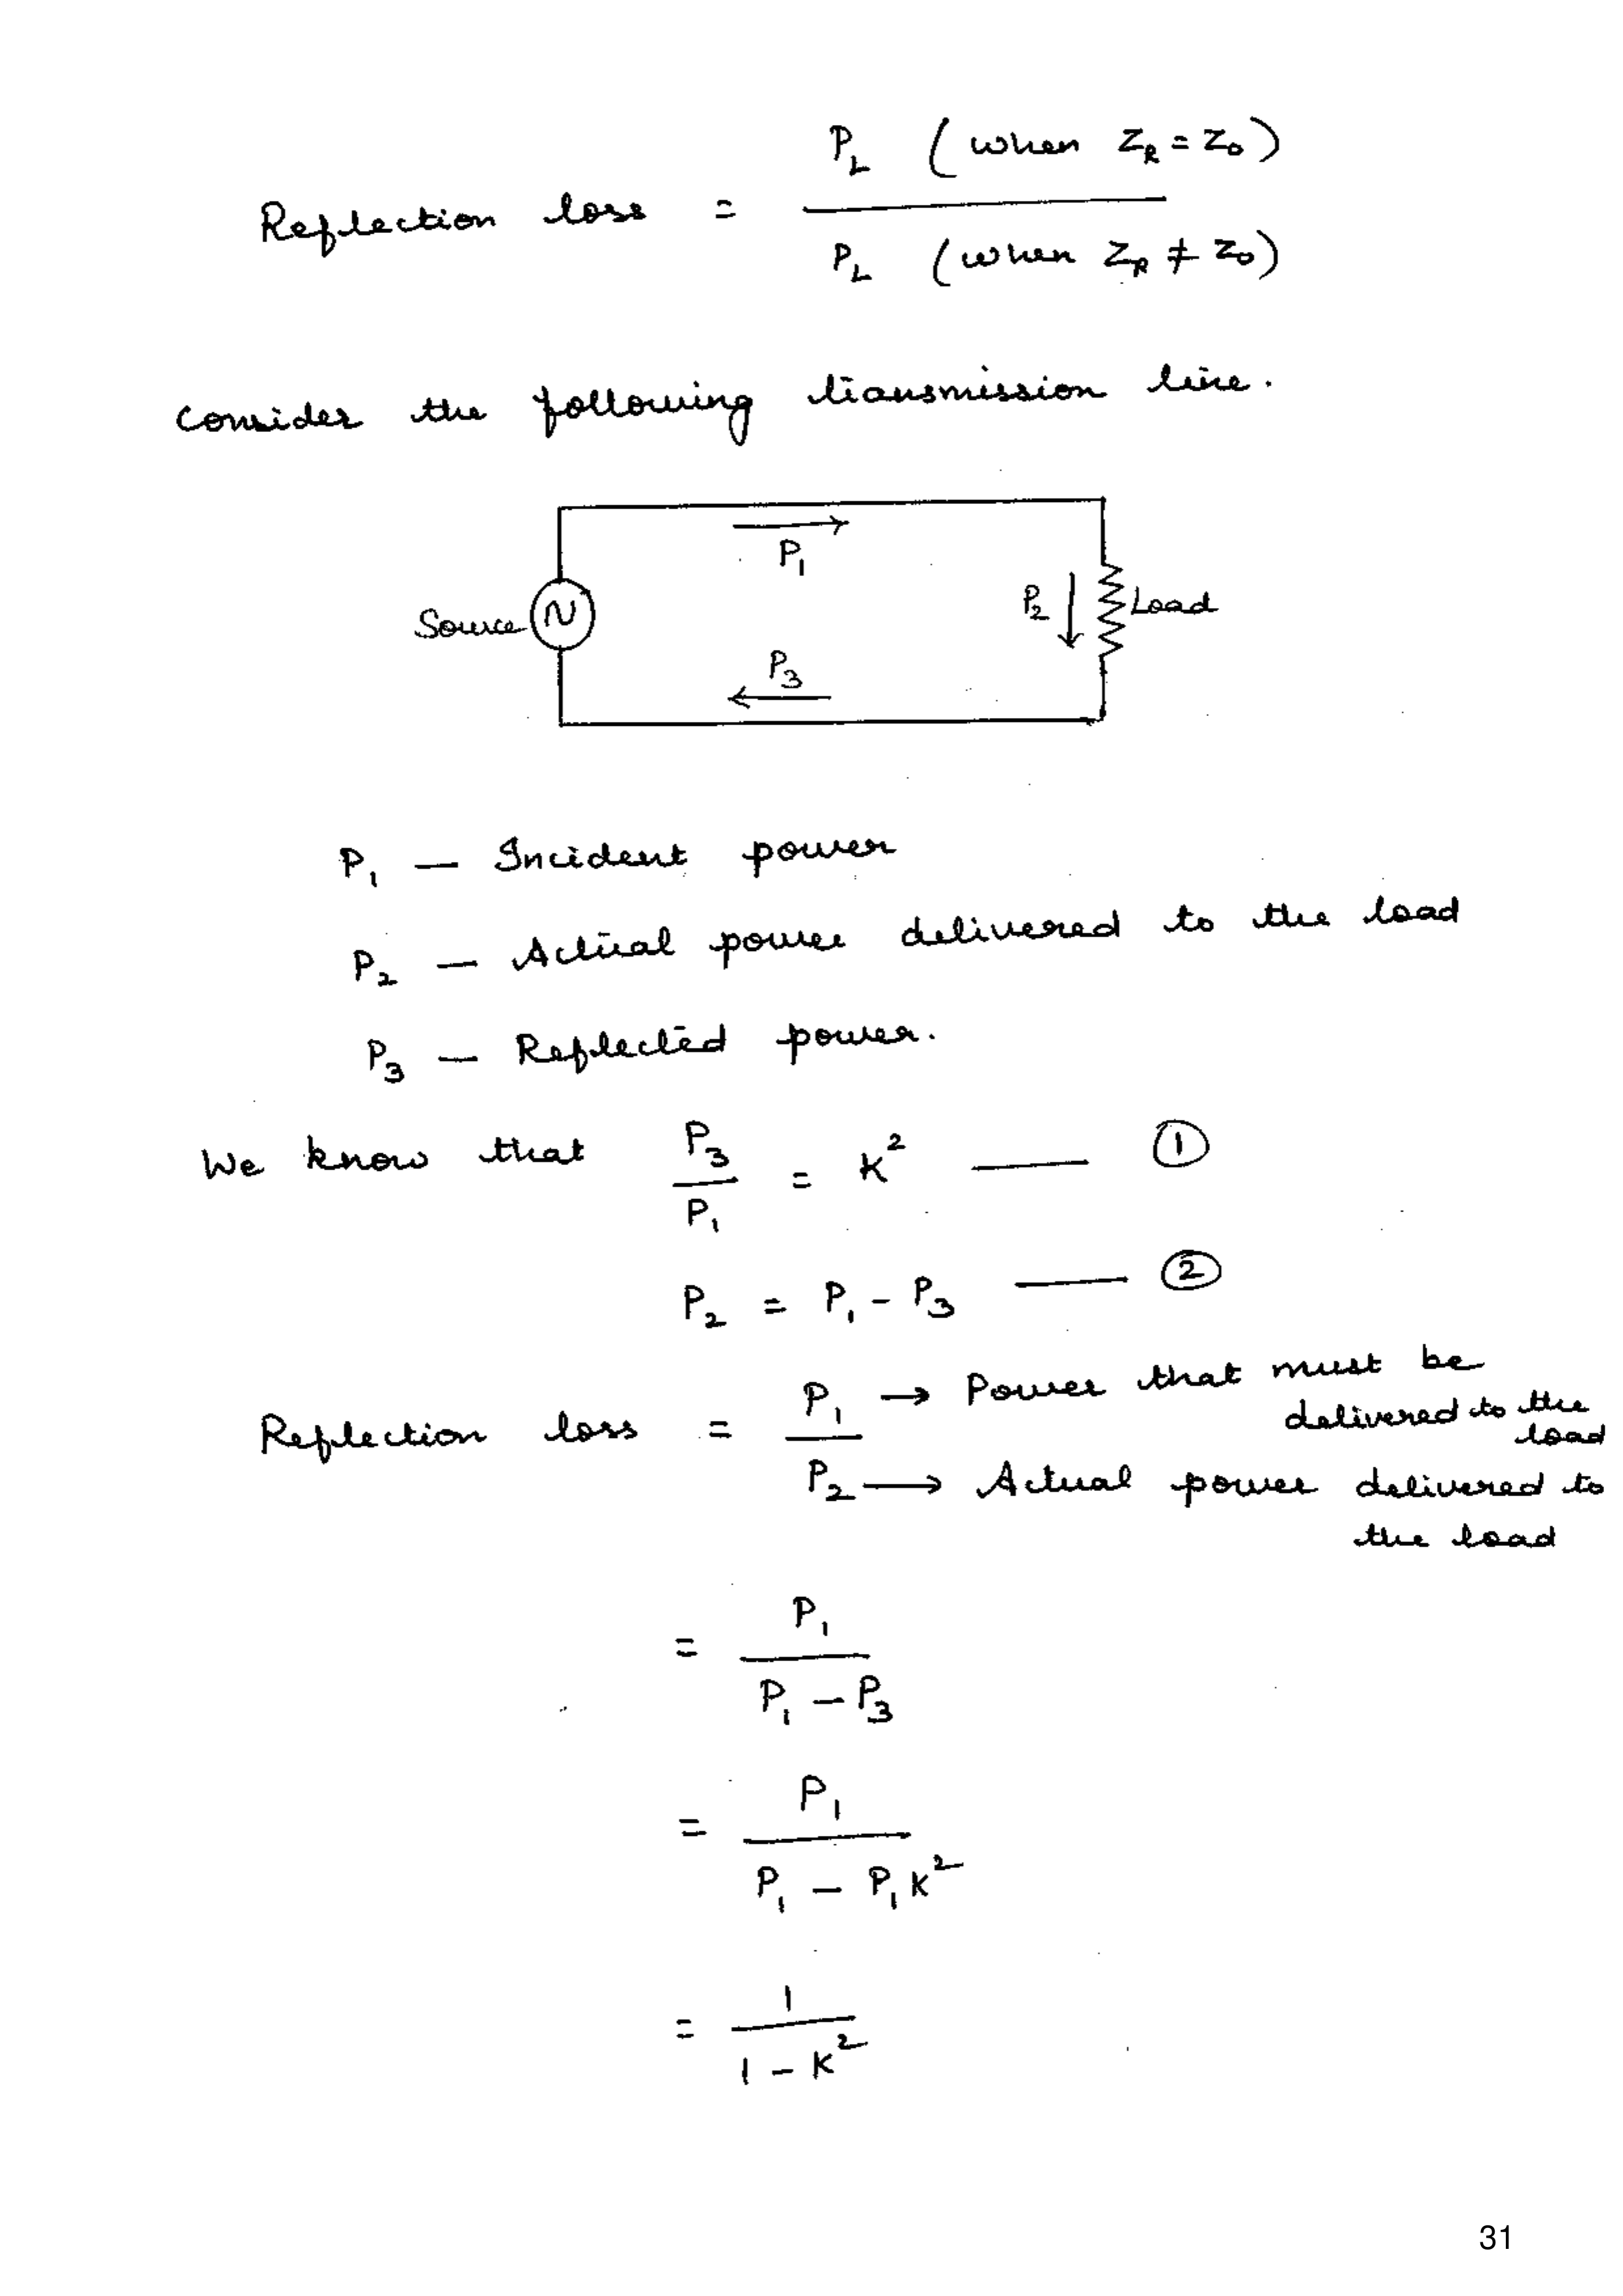 P_L (when Z_R = Z_0)
Reflection loss = ―――
P_L (when Z_R ≠ Z_0)
Consider the following transmission line.
P_1
Source
P_2
Load
P_3
P_1 — Incident power
P_2 — Actual power delivered to the load
P_3 — Reflected power.
We know that P_3 / P_1 = K² —— ①
P_2 = P_1 - P_3 —— ②
Reflection loss = P_1 → Power that must be
delivered to the
load
P_2 → Actual power delivered to
the load
= P_1 / (P_1 - P_3)
= P_1 / (P_1 - P_1 K²)
= 1 / (1 - K²)
31